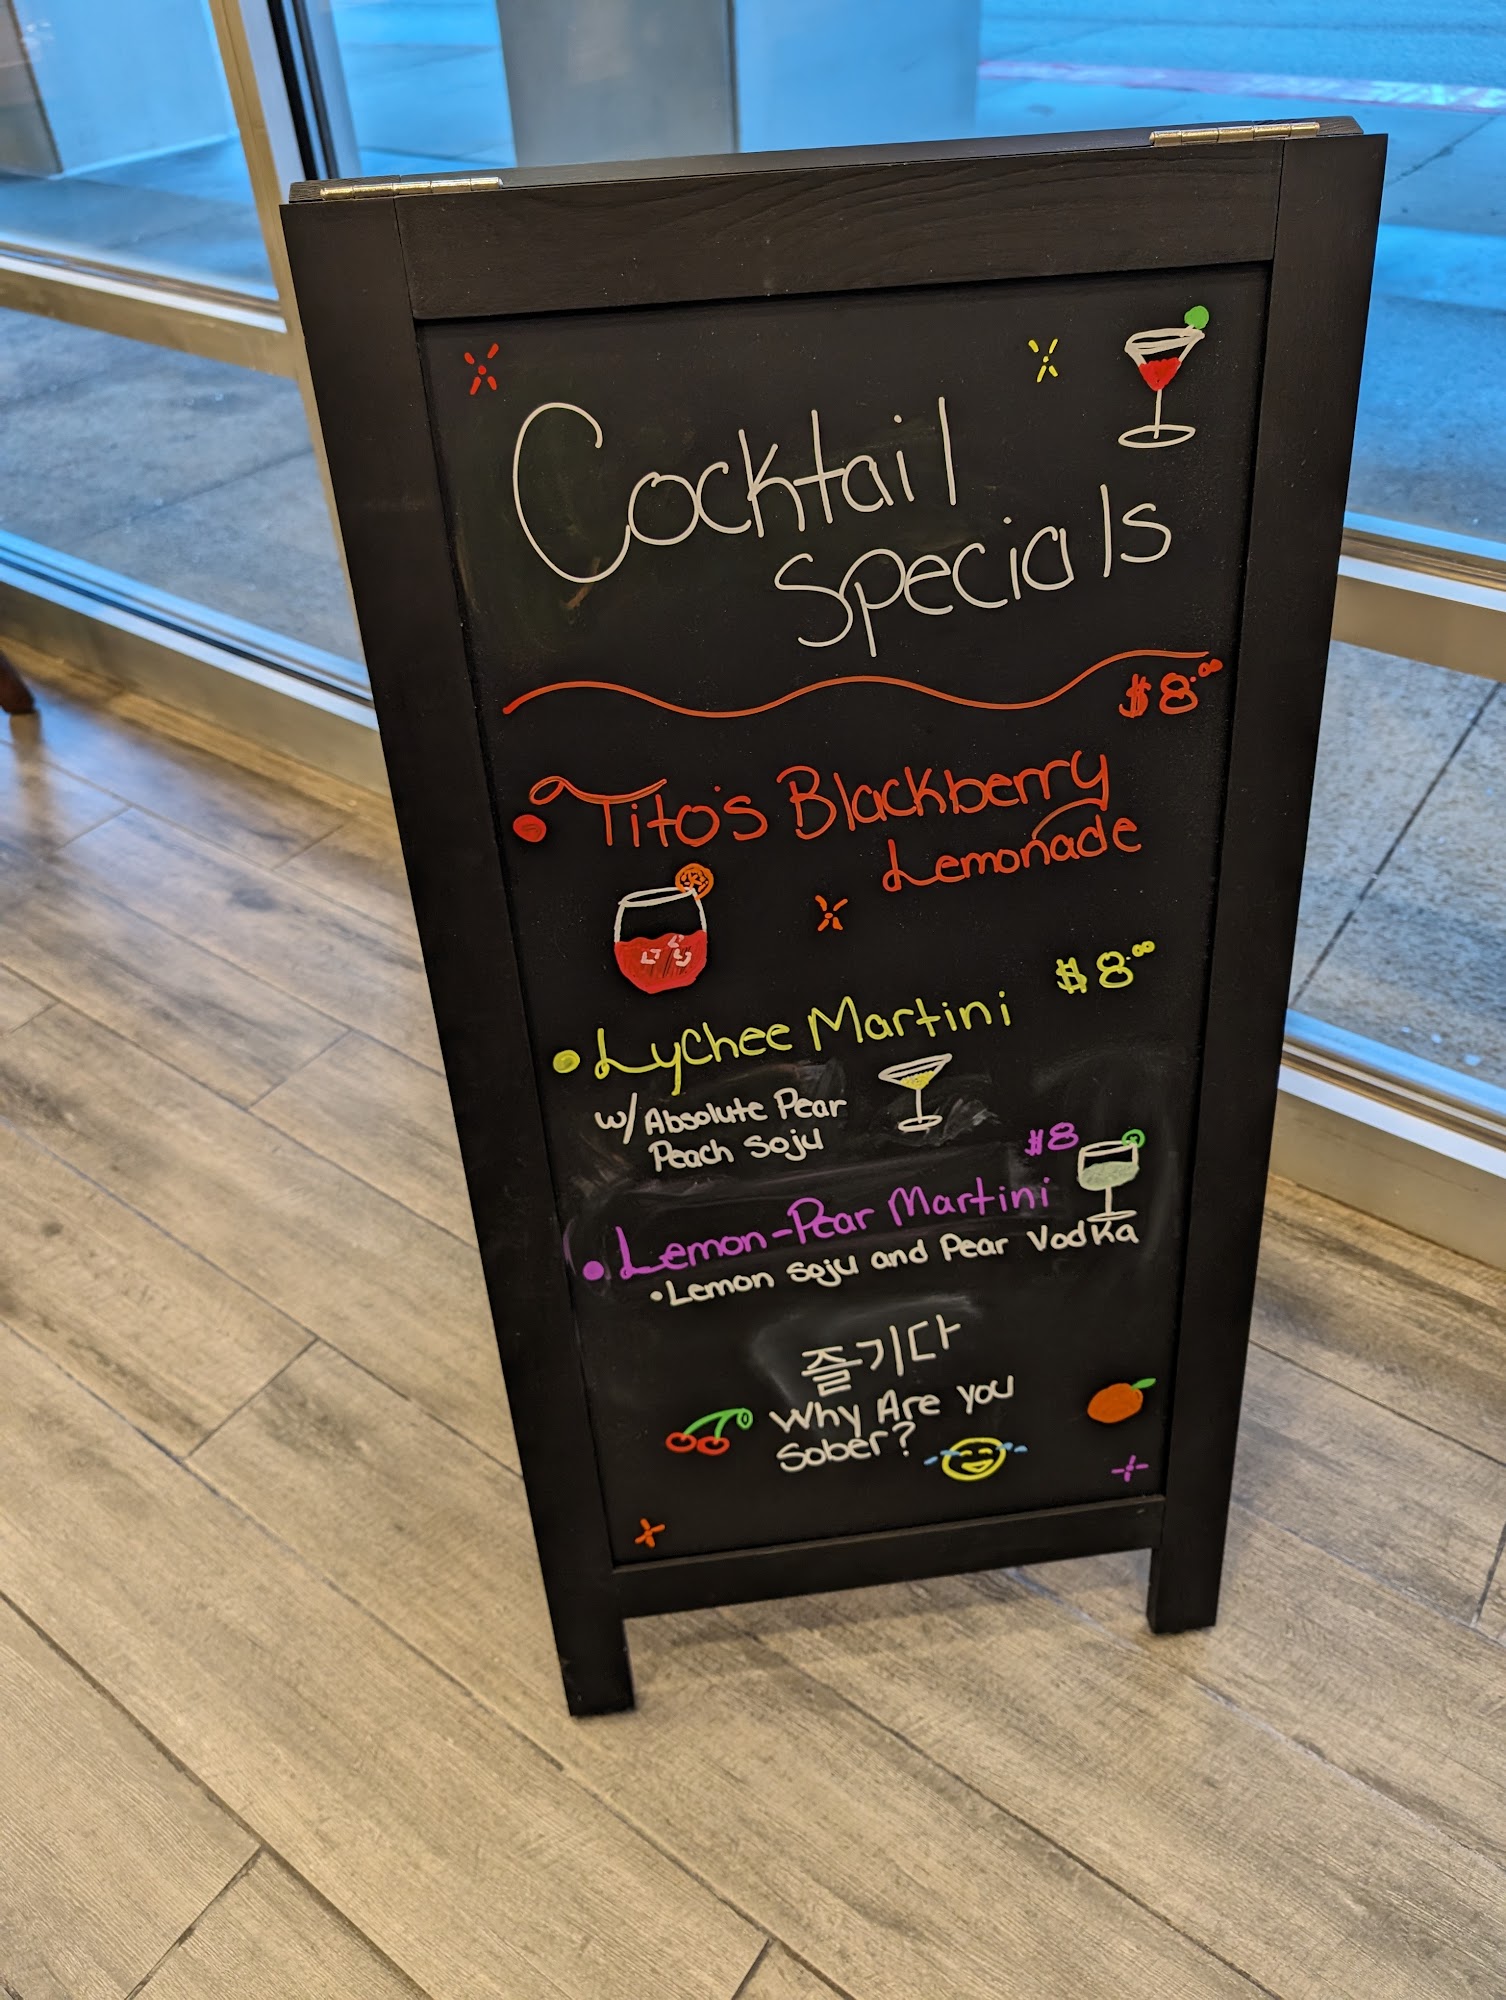 Cocktail
Specials
$8.00
Tito's Blackberry
Lemonade
$8.00
Lychee Martini
w/ Absolute Pear
Peach Soju
$8
Lemon-Pear Martini
• Lemon Soju and Pear Vodka
즐기다
Why Are you
Sober?